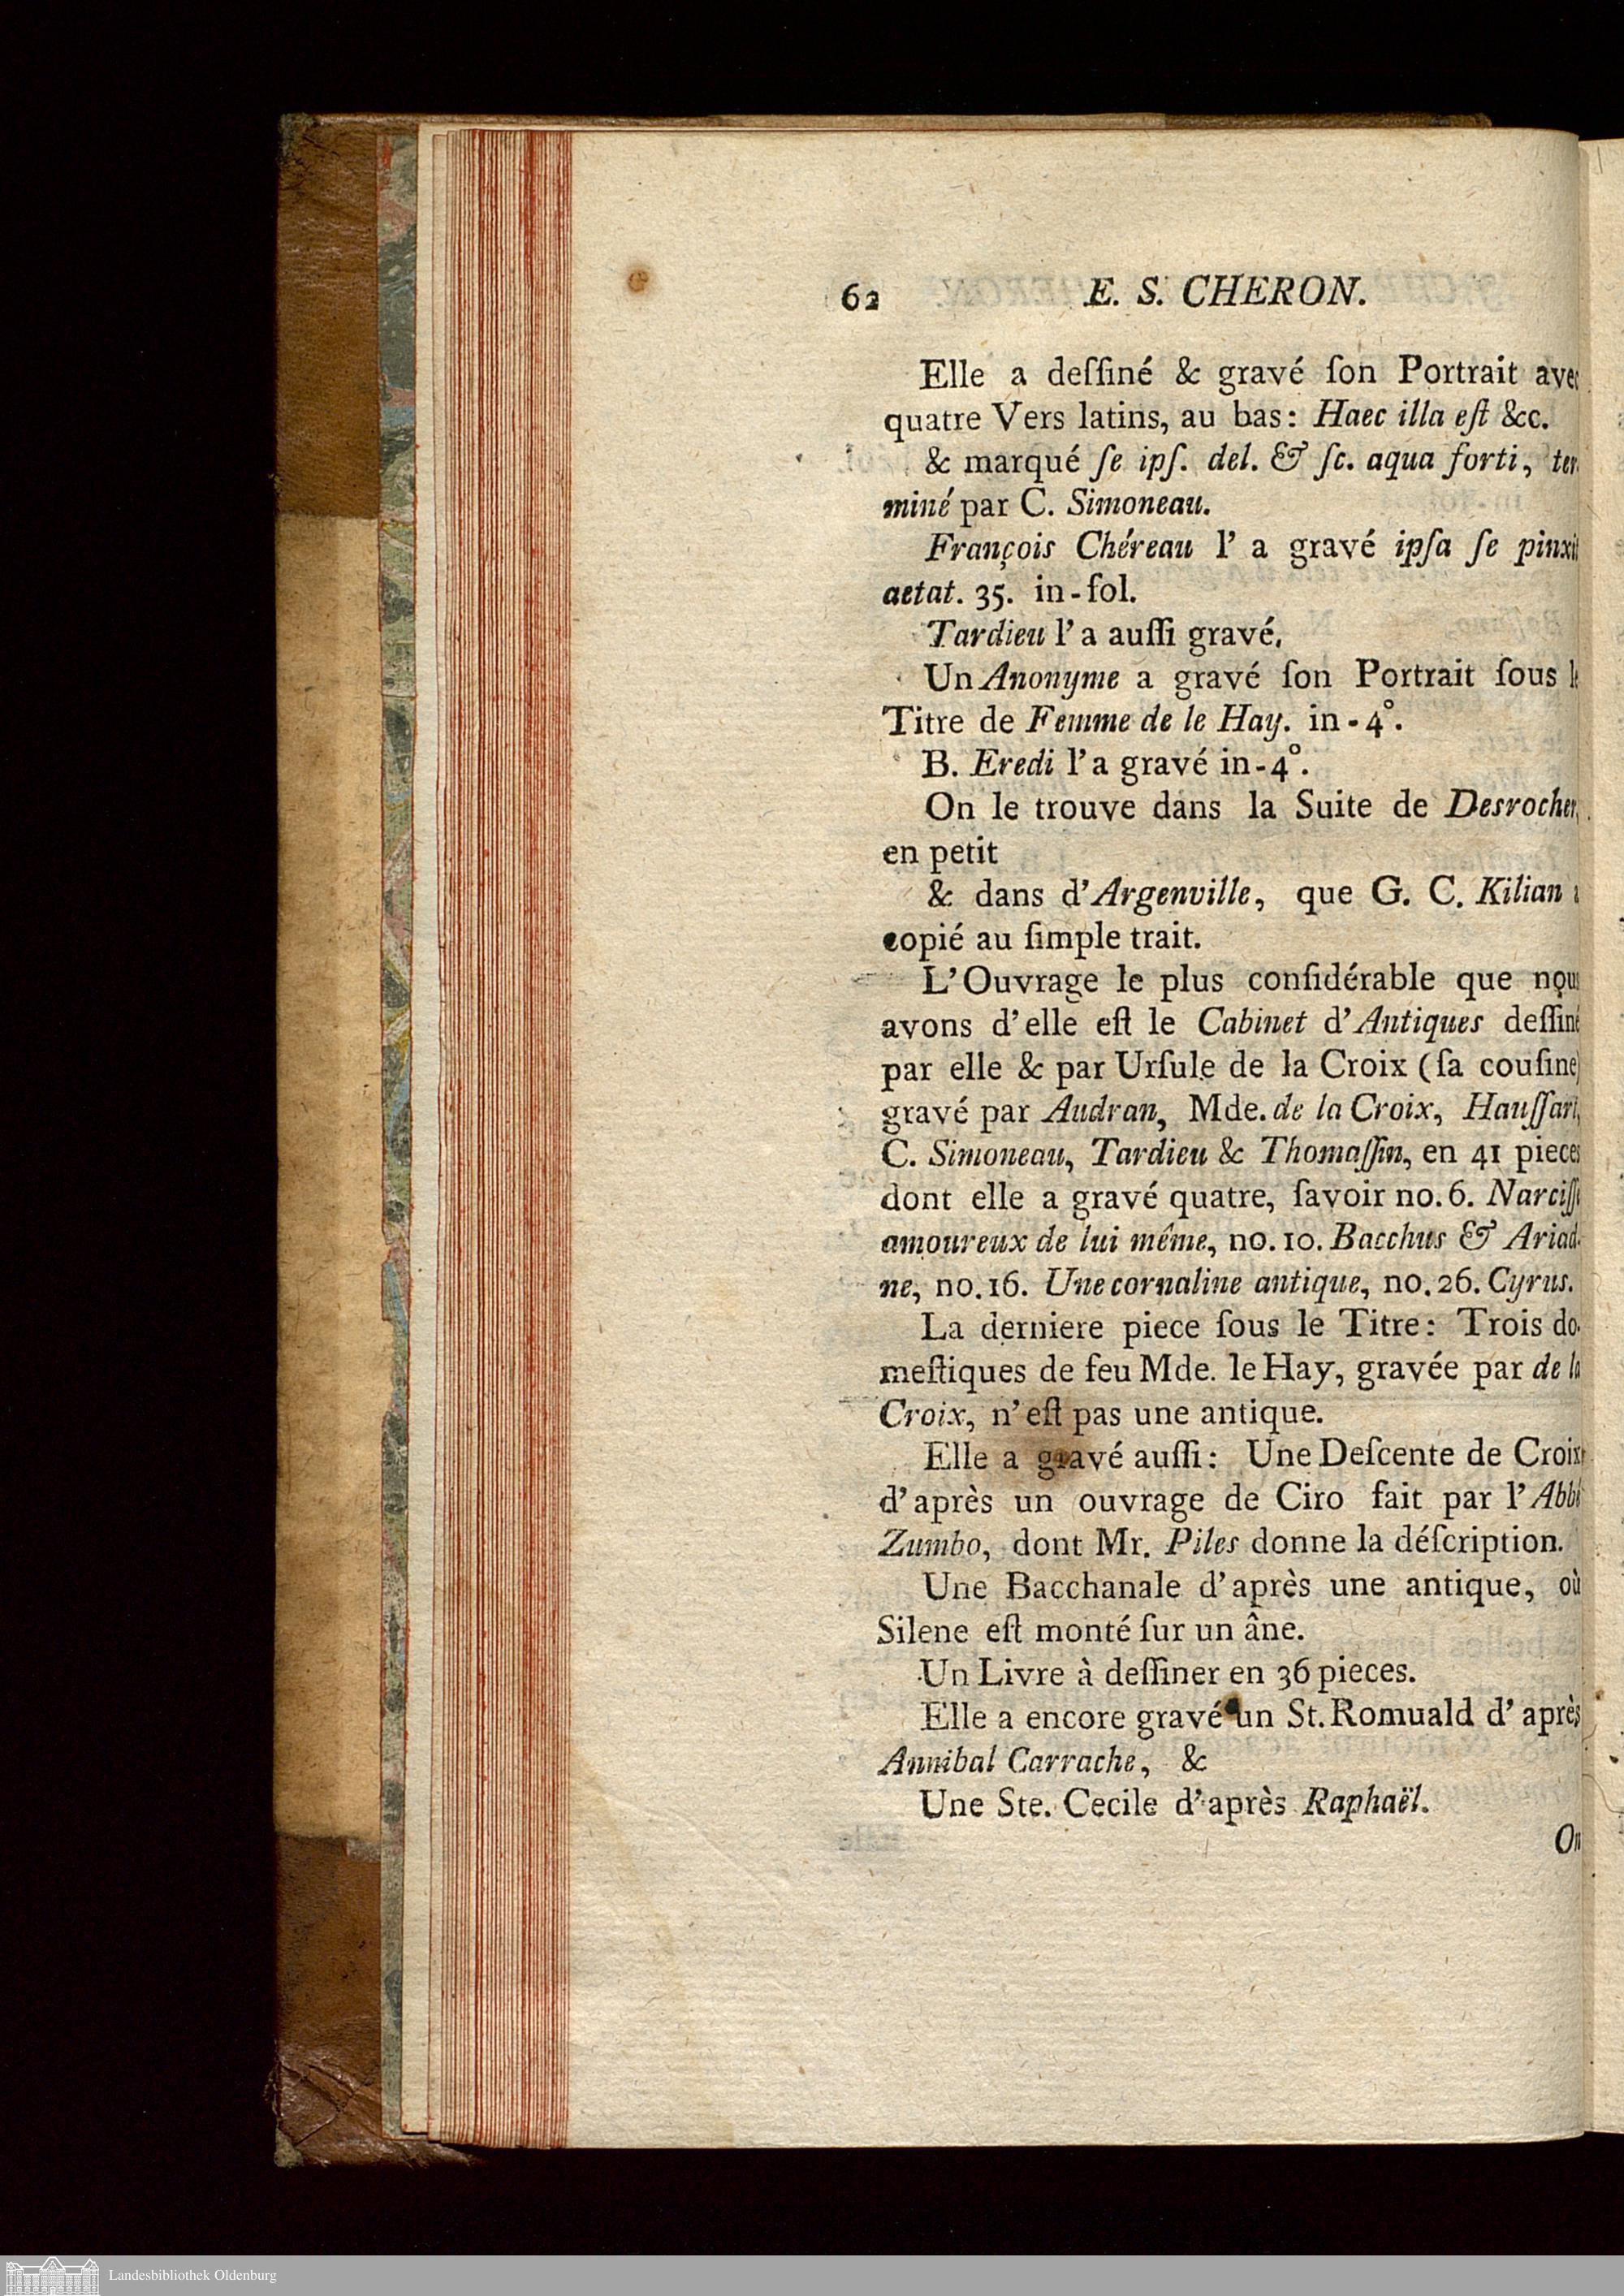 62 E. S. CHERON.
Elle a deſſiné & gravé ſon Portrait avec
quatre Vers latins, au bas: Haec illa eſt &c.
& marqué ſe ipſ. del. & ſc. aqua forti, ter
miné par C. Simoneau.
François Chéreau l' a gravé ipſa ſe pinxit
aetat. 35. in-fol.
Tardieu l'a auſſi gravé.
Un Anonyme a gravé ſon Portrait ſous le
Titre de Femme de le Hay. in-4°.
B. Eredi l'a gravé in-4°.
On le trouve dans la Suite de Desrocher,
en petit
& dans d'Argenville, que G. C. Kilian a
copié au ſimple trait.
L'Ouvrage le plus conſidérable que nous
avons d'elle eſt le Cabinet d'Antiques deſſiné
par elle & par Urſule de la Croix (ſa couſine)
gravé par Audran, Mde. de la Croix, Hauſſart,
C. Simoneau, Tardieu & Thomaſſin, en 41 pieces
dont elle a gravé quatre, ſavoir no. 6. Narciſſe
amoureux de lui même, no. 10. Bacchus & Ariad-
ne, no. 16. Une cornaline antique, no. 26. Cyrus.
La derniere piece ſous le Titre: Trois do-
meſtiques de feu Mde. le Hay, gravée par de la
Croix, n'eſt pas une antique.
Elle a gravé auſſi: Une Deſcente de Croix
d'après un ouvrage de Ciro fait par l'Abbé
Zumbo, dont Mr. Piles donne la déſcription.
Une Bacchanale d'après une antique, où
Silene eſt monté ſur un âne.
Un Livre à deſſiner en 36 pieces.
Elle a encore gravé un St. Romuald d'après
Annibal Carrache, &
Une Ste. Cecile d'après Raphaël.
On
Landesbibliothek Oldenburg